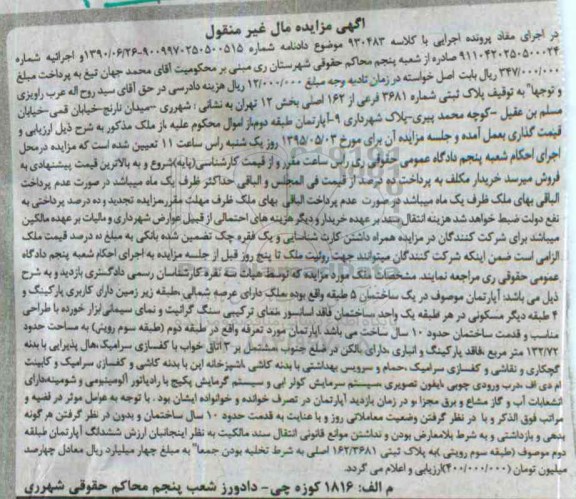 آگهی مزایده مال غیر منقول
در اجرای مفاد پرونده اجرایی با کلاسه 930483 موضوع دادنامه شماره 9009970250500515-1390/06/26 و اجرائیه شماره
9110420250500024 صادره از شعبه پنجم محاکم حقوقی شهرستان ری مبنی بر محکومیت آقای محمد جهان تیغ به پرداخت مبلغ
347/000/000 ریال بابت اصل خواسته در زمان تادیه وجه مبلغ 12/000/000 ریال هزینه دادرسی در حق آقای سید روح اله عرب راویزی
و توجها" به توقیف پلاک ثبتی شماره 3681 فرعی از 162 اصلی بخش 12 تهران به نشانی : شهرری –میدان نارنج-خیابان قمی-خیابان
مسلم بن عقیل –کوچه محمد پیری-پلاک شهرداری 9-آپارتمان طبقه دوم،از اموال محکوم علیه ،از ملک مذکور به شرح ذیل ارزیابی و
قیمت گذاری بعمل آمده و جلسه مزایده آن برای مورخ 1395/05/03 روز یک شنبه راس ساعت 11 تعیین شده است که مزایده درمحل
اجرای احکام شعبه پنجم دادگاه عمومی حقوقی ری راس ساعت مقرر و از قیمت کارشناسی(پایه)شروع و به بالاترین قیمت پیشنهادی به
فروش میرسد خریدار مکلف به پرداخت ده درصد از قیمت فی المجلس و الباقی حداکثر ظرف یک ماه میباشد در صورت عدم پرداخت
الباقی بهای ملک ظرف یک ماه میباشد در صورت عدم پرداخت الباقی بهای ملک ظرف مهلت مقرر،مزایده تجدید و ده درصد پرداختی به
نفع دولت ضبط خواهد شد هزینه انتقال سند بر عهده خریدار و دیگر هزینه های احتمالی از قبیل عوارض شهرداری و مالیات بر عهده مالکین
میباشد برای شرکت کنندگان در مزایده همراه داشتن کارت شناسایی و یک فقره چک تضمین شده بانکی به مبلغ ده درصد قیمت ملک
الزامی است ضمن اینکه شرکت کنندگان میتوانند جهت روئیت ملک تا پنج روز قبل از جلسه مزایده به اجرای احکام شعبه پنجم دادگاه
عمومی حقوقی ری مراجعه نمایند. مشخصات ملک مورد مزایده که توسط هیات سه نفره کارشناسان رسمی دادگستری بازدید و به شرح
ذیل می باشد: آپارتمان موصوف در یک ساختمان 5 طبقه واقع بوده ،ملک دارای عرصه شمالی ،طبقه زیر زمین دارای کاربری پارکینگ و
4 طبقه دیگر مسکونی در هر طبقه یک واحد ،ساختمان فاقد آسانسور ،نمای ترکیبی سنگ گرانیت و نمای سیمانی ابزار خورده با طراحی
مناسب و قدمت ساختمان حدود 10 سال ساخت می باشد .آپارتمان مورد تعرفه واقع در طبقه دوم (طبقه سوم رویتی) به مساحت حدود
132/72 متر مربع ،فاقد پارکینگ و انباری ،دارای بالکن در ضلع جنوب مشتمل بر 3 اتاق خواب با کفسازی سرامیک،هال پذیرایی با بدنه
گچکاری و نقاشی و کفسازی سرامیک ،حمام و سرویس بهداشتی با بدنه کاشی ،آشپزخانه اپن با بدنه کاشی و کفسازی سرامیک و کابینت
ام دی اف ،درب ورودی چوبی ،آیفون تصویری ،سیستم سرمایش کولر آبی و سیستم گرمایش پکیج با رادیاتور آلومینیومی و شومینه،دارای
انشعابات آب و گاز مشاع و برق مجزا ،و در زمان بازدید آپارتمان در تصرف خوانده و خانواده ایشان بود . با توجه به عوامل موثر در قضیه و
مراتب فوق الذکر و با در نظر گرفتن وضعیت معاملاتی روز و با عنایت به قدمت حدود 10 سال ساختمان و بدون در نظر گرفتن هر گونه
بدهی و بازداشتی و به شرط بلامعارض بودن و نداشتن موانع قانونی انتقال سند مالکیت به نظر اینجانبان ارزش ششدانگ آپارتمان طبقه
دوم موصوف (طبقه سوم رویتی )به پلاک ثبتی 162/3681 اصلی به شرط تخلیه بودن جمعا" به مبلغ چهار میلیارد ریال معادل چهارصد
میلیون تومان (400/000/000)ارزیابی و اعلام می گردد.
م الف: 1816 کوزه چی- دادورز شعب پنجم محاکم حقوقی شهرری